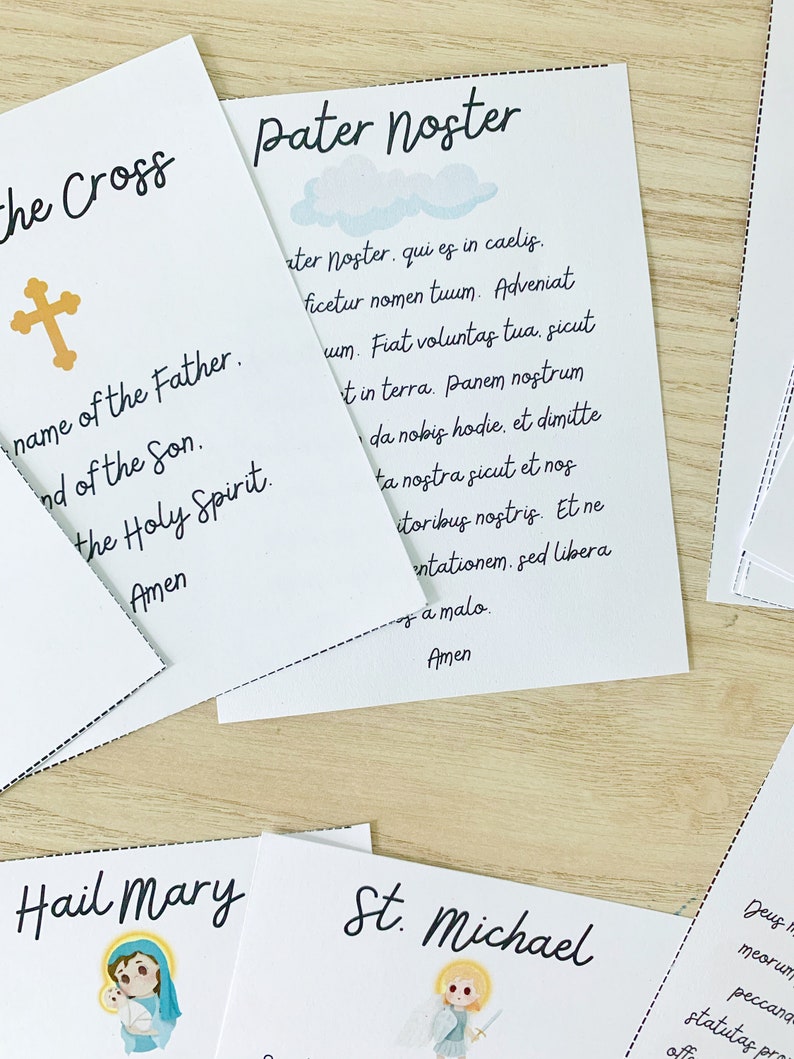 the Cross
name of the Father,
of the Son,
the Holy Spirit.
Amen
Pater Noster
Noster, qui es in caelis,
nomen tuum. Adveniat
Fiat voluntas tua, sicut
in terra. Panem nostrum
da nobis hodie, et dimitte
nostra sicut et nos
nostris. Et ne
sed libera
a malo.
Amen
Hail Mary
St. Michael
Deus
meorum,
statutas